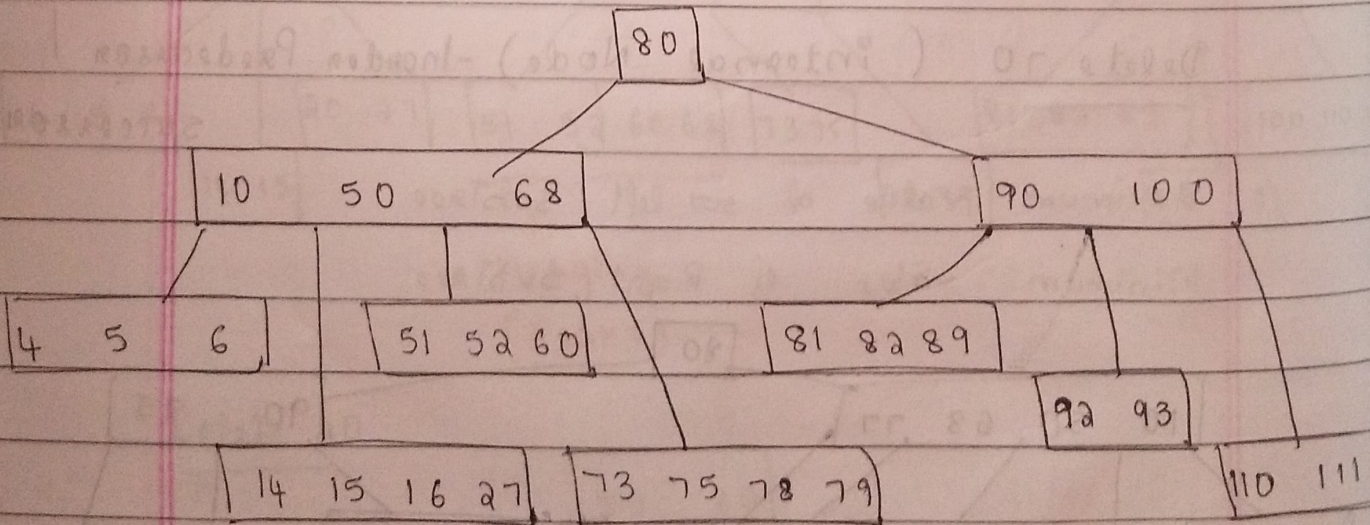 80
10 50 68 90 100
4 5 6 51 52 60 81 82 89
92 93
14 15 16 27 73 75 78 79 110 111